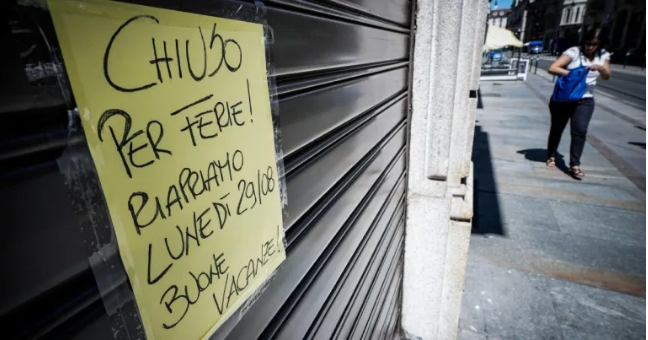 CHIUSO
PER FERIE!
RIAPRIAMO
LUNEDÌ 29/08
BUONE
VACANZE!